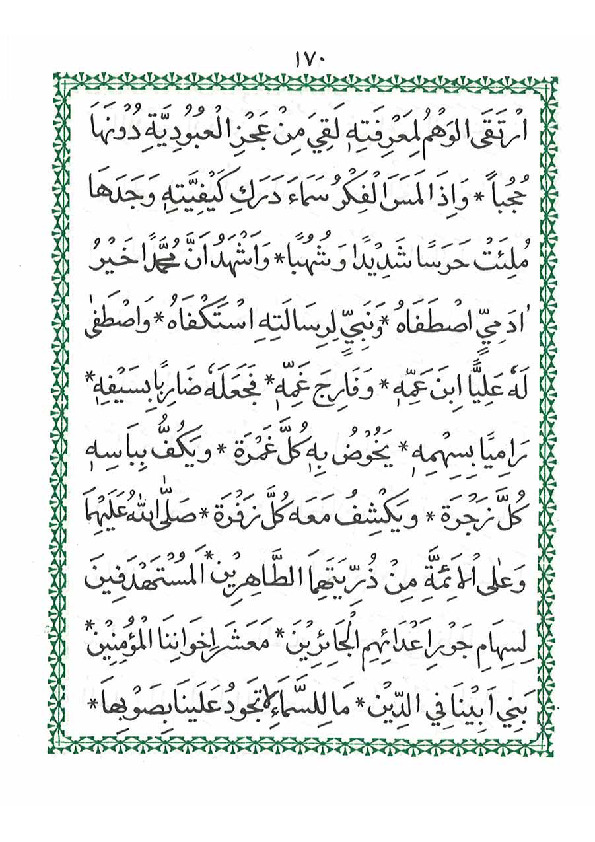 ١٧٠
اِرْتَقَى الوَهْمُ لِمَعْرِفَتِهِ لَقِيَ مِنْ عَجْزِ الْعُبُوْدِيَّةِ دُوْنَهَا
حُجُباً * وَاِذَا لَمَسَ الْفِكْرُ سَمَاءَ دَرَكِ كَيْفِيَّتِهِ وَجَدَهَا
مُلِئَتْ حَرَسًا شَدِيْدًا وَشُهُبًا * وَاَشْهَدُ اَنَّ مُحَمَّدًا خَيْرُ
اٰدَمِيٍّ اصْطَفَاهُ * وَنَبِيٍّ لِرِسَالَتِهِ اسْتَكْفَاهُ * وَاصْطَفٰى
لَهُ عَلِيًّا ابْنَ عَمِّهِ * وَفَارِجَ غَمِّهِ * فَجَعَلَهُ ضَارِبًا بِسَيْفِهِ *
رَامِيًا بِسِهْمِهِ * يَخُوْضُ بِهِ كُلَّ غَمْرَةٍ * وَيَكُفُّ بِبَاسِهِ
كُلَّ زَجْرَةٍ * وَيَكْشِفُ مَعَه كُلَّ زَفْرَةٍ * صَلَّى اللهُ عَلَيْهِمَا
وَعَلٰى الْاَئِمَّةِ مِنْ ذُرِّيَتِهِمَا الطَّاهِرِيْنَ * اَلْمُسْتَهْدَفِيْنَ
لِسِهَامِ جَوْرِ اَعْدَائِهِمِ الْجَائِرِيْنَ * مَعَشَرَ اِخْوَانِنَا الْمُؤْمِنِيْنَ *
بَنِي اَبِيْنَا فِي الدِّيْنِ * مَا لِلسَّمَاءِ لَا تَجُوْدُ عَلَيْنَا بِصَوْبِهَا *